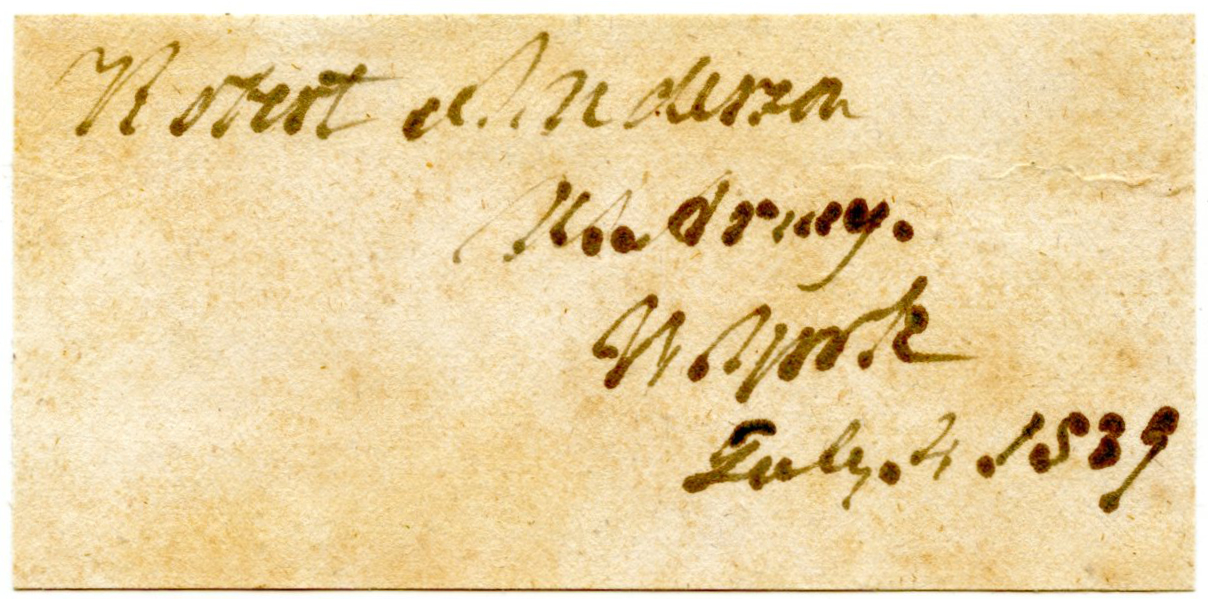 Robert Anderson
U.S. Army.
N. York
July. 4. 1839